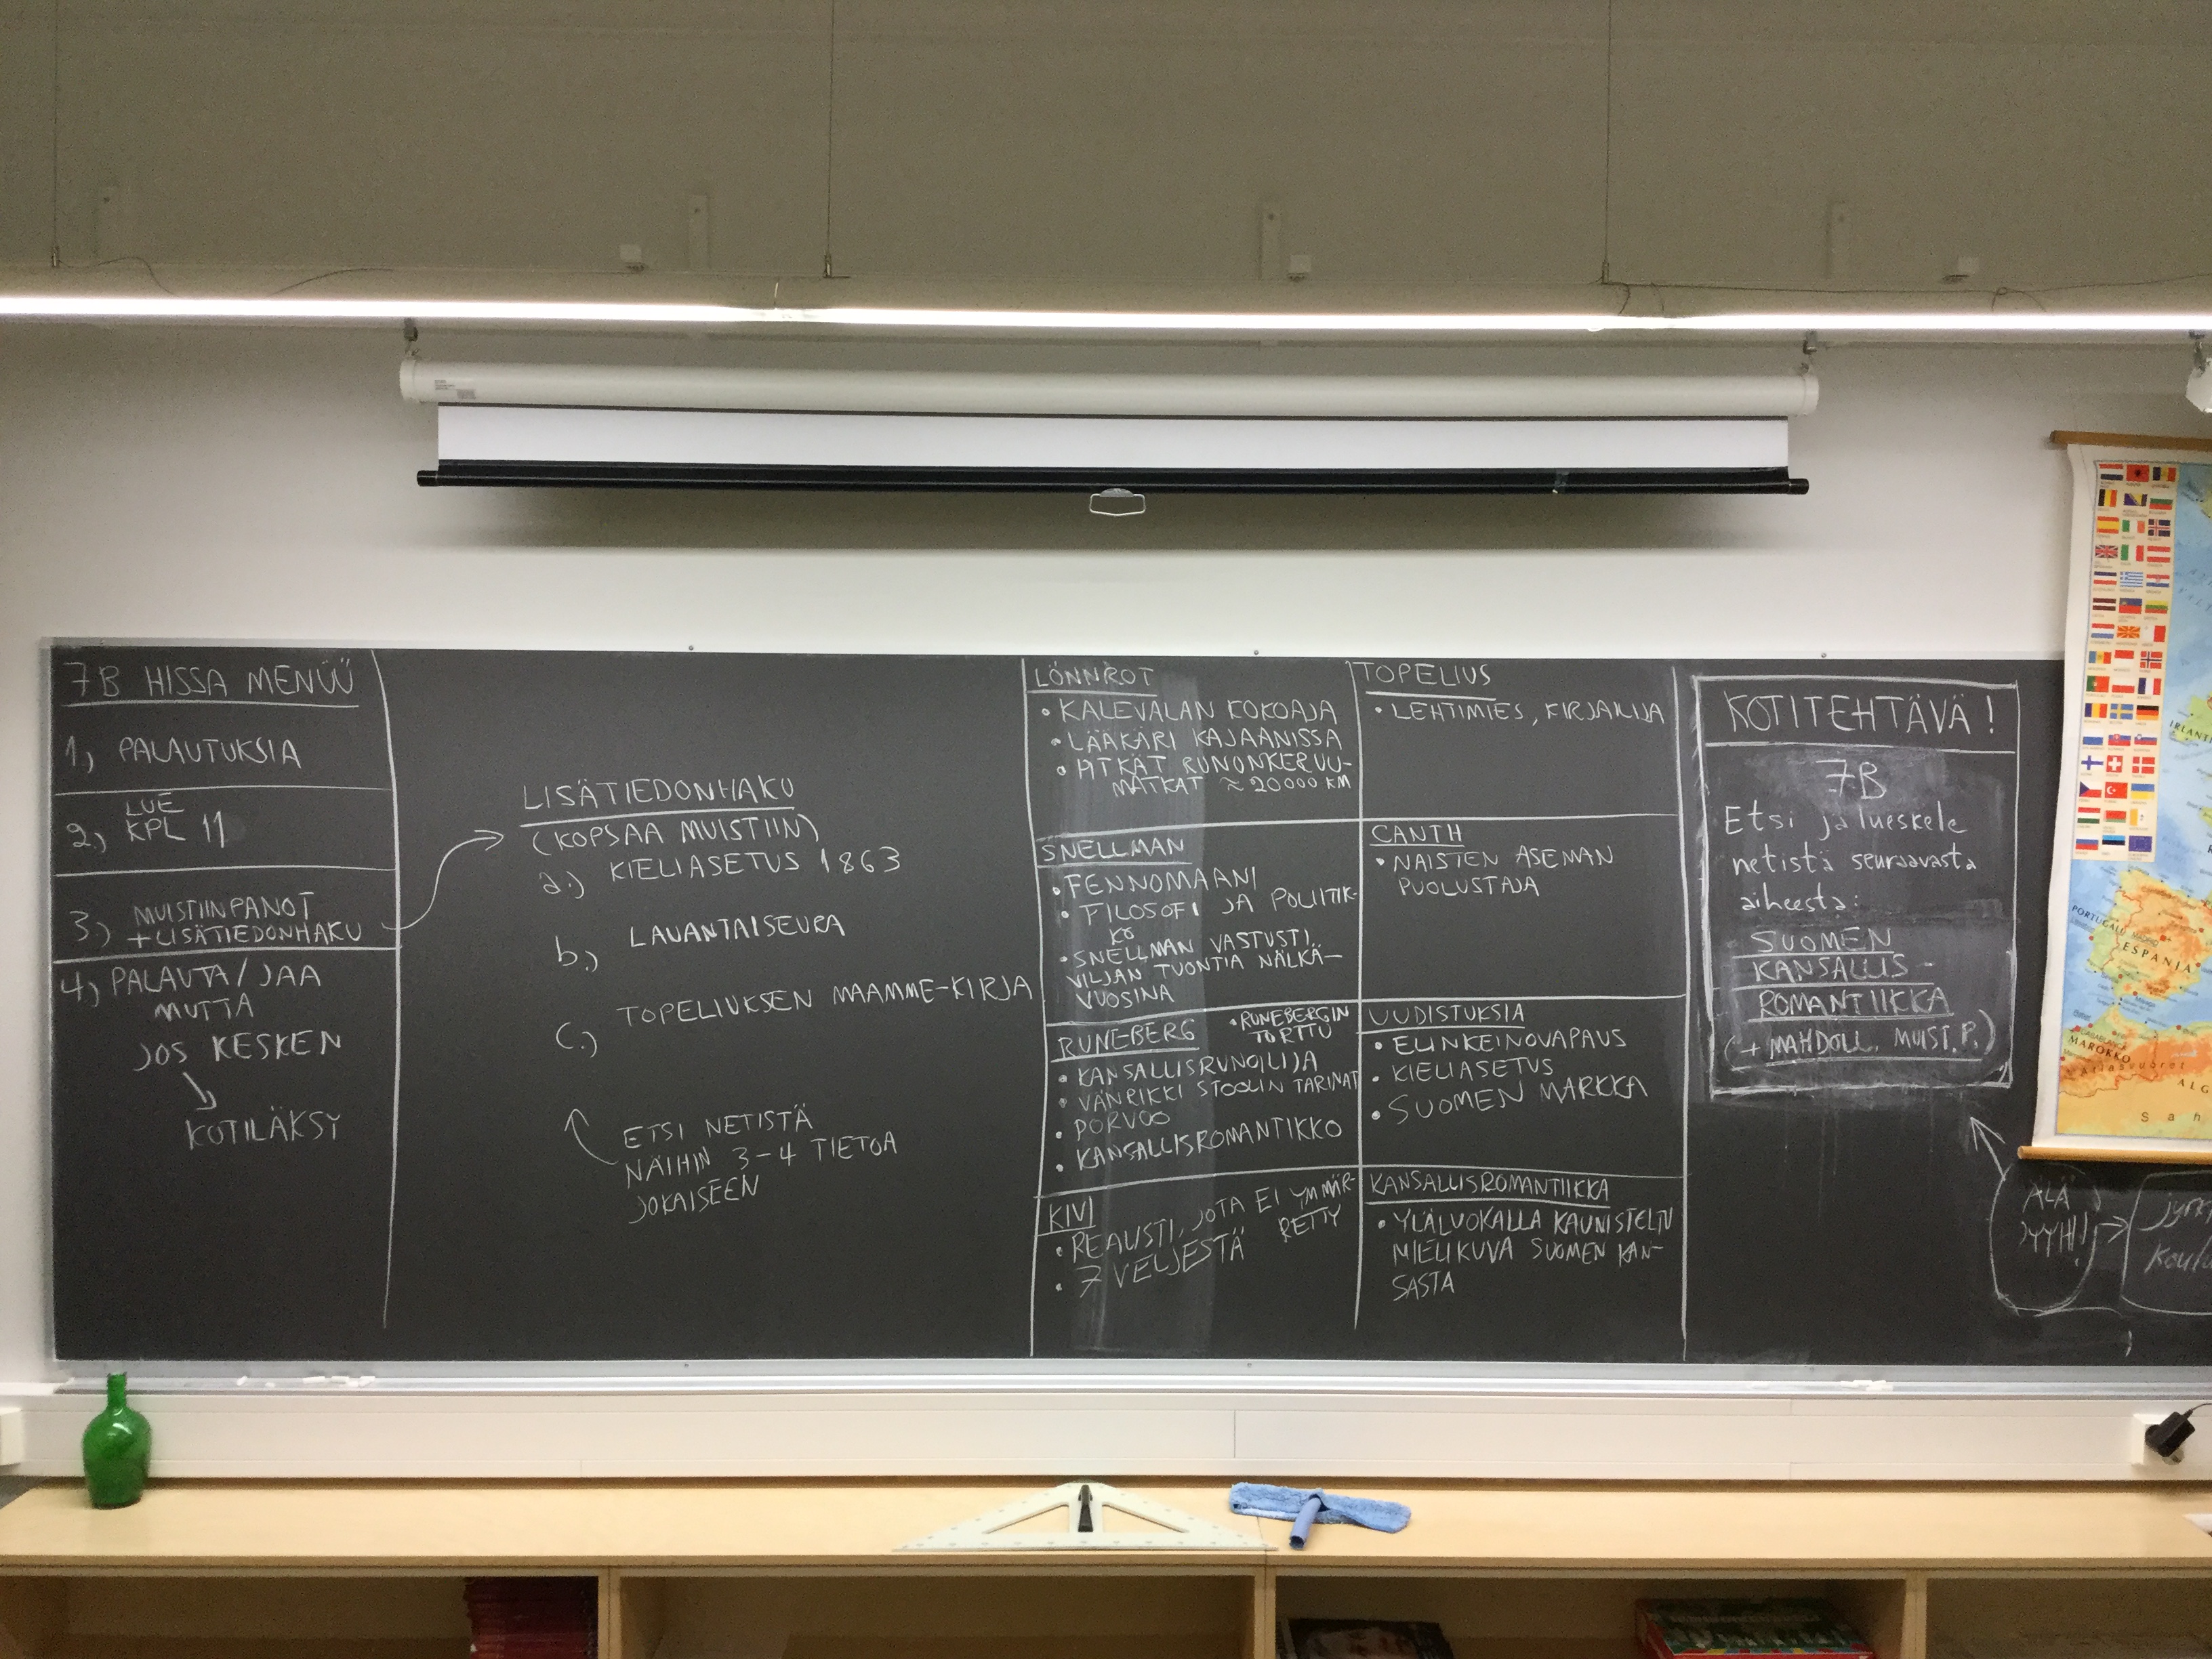 7B HISSA MENÜÜ
1) PALAUTUKSIA
2) LUE
KPL 11
3) MUISTIINPANOT
+ LISÄTIEDONHAKU
4) PALAUTA / JAA
MUTTA
JOS KESKEN
KOTILÄKSY
LISÄTIEDONHAKU
(KOPSAA MUISTIIN)
a.) KIELIASETUS 1863
b.) LAUANTAISEURA
c.) TOPELIUKSEN MAAMME-KIRJA
ETSI NETISTÄ
NÄIHIN 3-4 TIETOA
JOKAISEEN
LÖNNROT
• KALEVALAN KOKOAJA
• LÄÄKÄRI KAJAANISSA
• PITKÄT RUNONKERUU-
MATKAT ≈ 20000 KM
SNELLMAN
• FENNOMAANI
• FILOSOFI JA POLIITIK-
KO
• SNELLMAN VASTUSTI
VILJAN TUONTIA NÄLKÄ-
VUOSINA
RUNEBERG
• RUNEBERGIN
TORTTU
• KANSALLISRUNOILIJA
• VÄNRIKKI STOOLIN TARINAT
• PORVOO
• KANSALLISROMANTIKKO
KIVI
• REALISTI, JOTA EI YMMÄR-
RETTY
• 7 VELJESTÄ
TOPELIUS
• LEHTIMIES, KIRJAILIJA
CANTH
• NAISTEN ASEMAN
PUOLUSTAJA
UUDISTUKSIA
• ELINKEINOVAPAUS
• KIELIASETUS
• SUOMEN MARKKA
KANSALLISROMANTIIKKA
• YLÄLUOKALLA KAUNISTELTU
MIELIKUVA SUOMEN KAN-
SASTA
KOTITEHTÄVÄ!
7B
Etsi ja lueskele
netistä seuraavasta
aiheesta:
SUOMEN
KANSALLIS-
ROMANTIIKKA
(+ MAHDOLL. MUIST.P.)
ÄLÄ
PYYHI!
PORTUGAL
ESPANIA
MAROKKO
Atlasvuoret